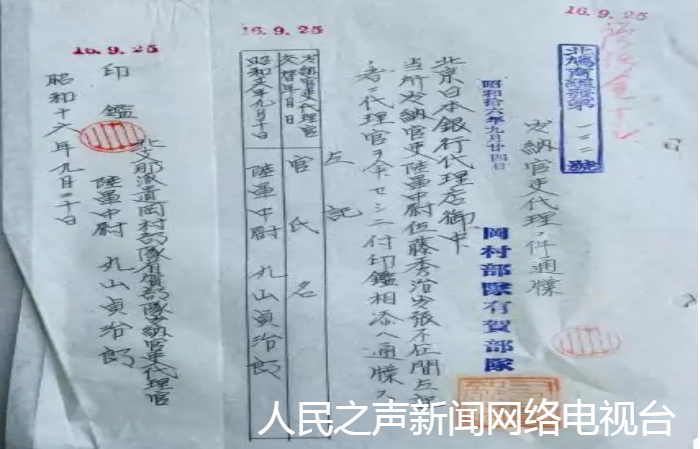 16.9.25
北鳩商經發第一二二號
出納官吏代理ノ件通牒
昭和拾六年九月廿四日
岡村部隊有賀部隊
北京日本銀行代理店御中
当所出納官吏陸軍中尉伍藤秀治出張不在間左記
者ニ代理官ヲ命セシニ付印鑑相添ヘ通牒ス
左記
16.9.25
出納官吏代理官
交替年月日
官氏名
昭和十六年九月二十日
陸軍中尉 丸山貞治郎
16.9.25
印鑑
北支那派遣岡村部隊有賀部隊出納官吏代理官
陸軍中尉 丸山貞治郎
昭和十六年九月二十日
人民之声新闻网络电视台